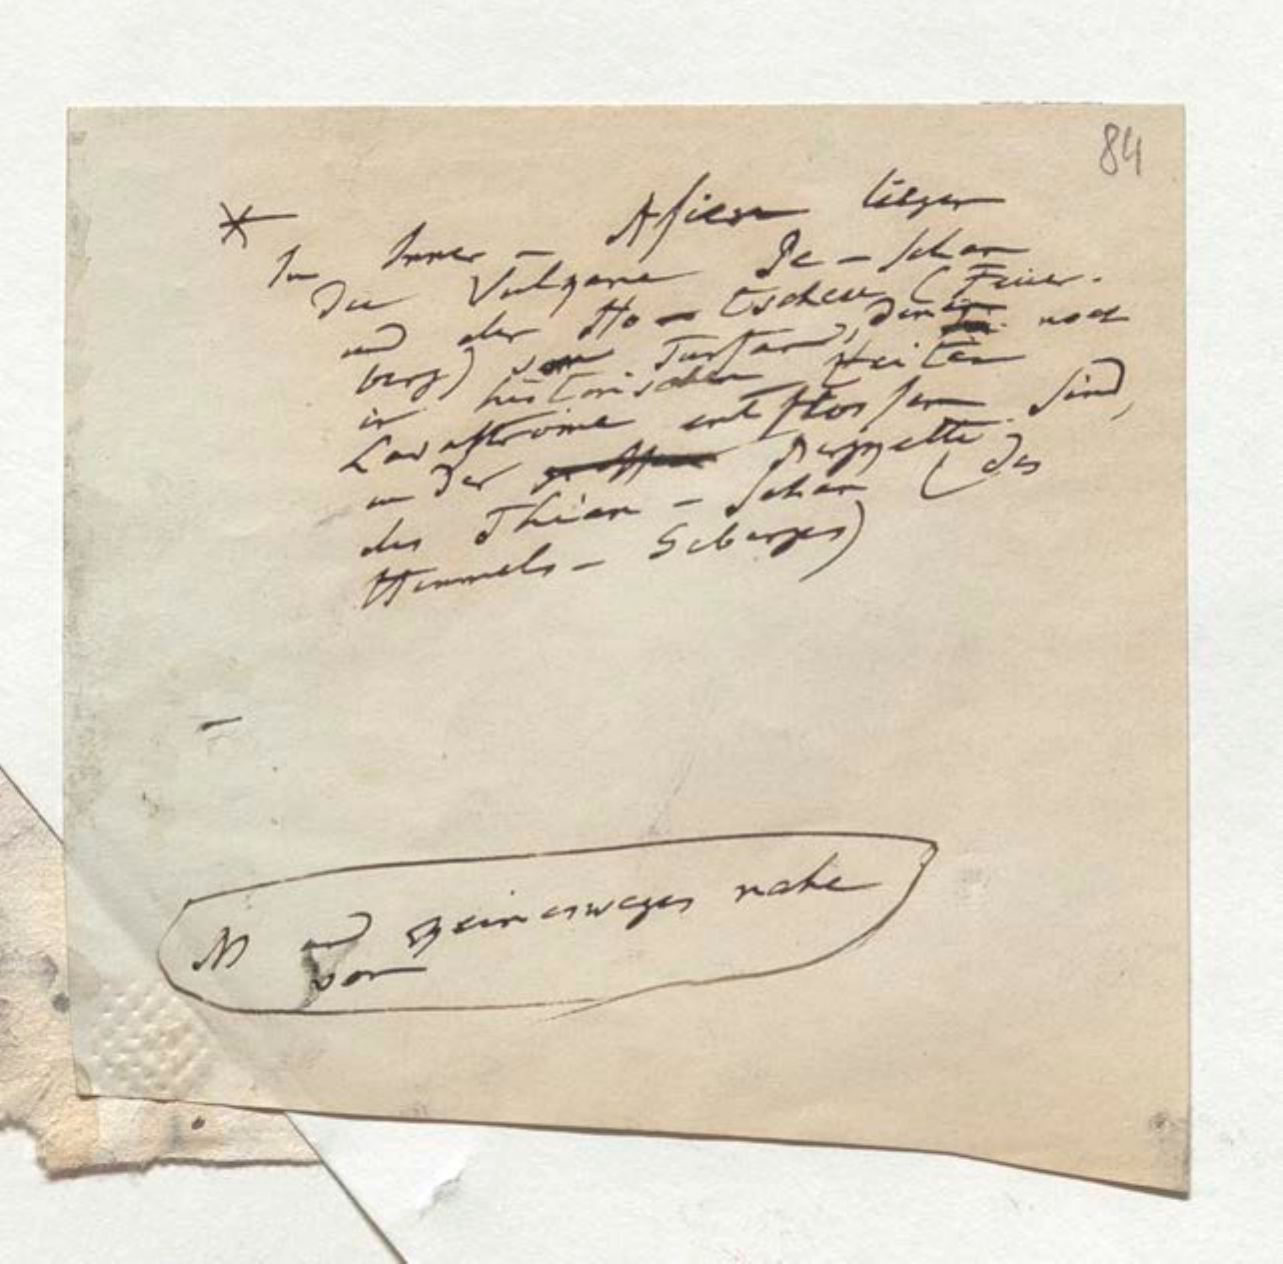 84
* In Inner-Asien liegen
die Vulkane Pe-schan
und der Ho-tscheu (Feuer-
berg) von Turfan, denen noch
in historischen Zeiten
Lavaströme entflossen sind,
in der Bergkette
des Thian-schan (des
Himmels-Gebirges)
und keinesweges nahe
von